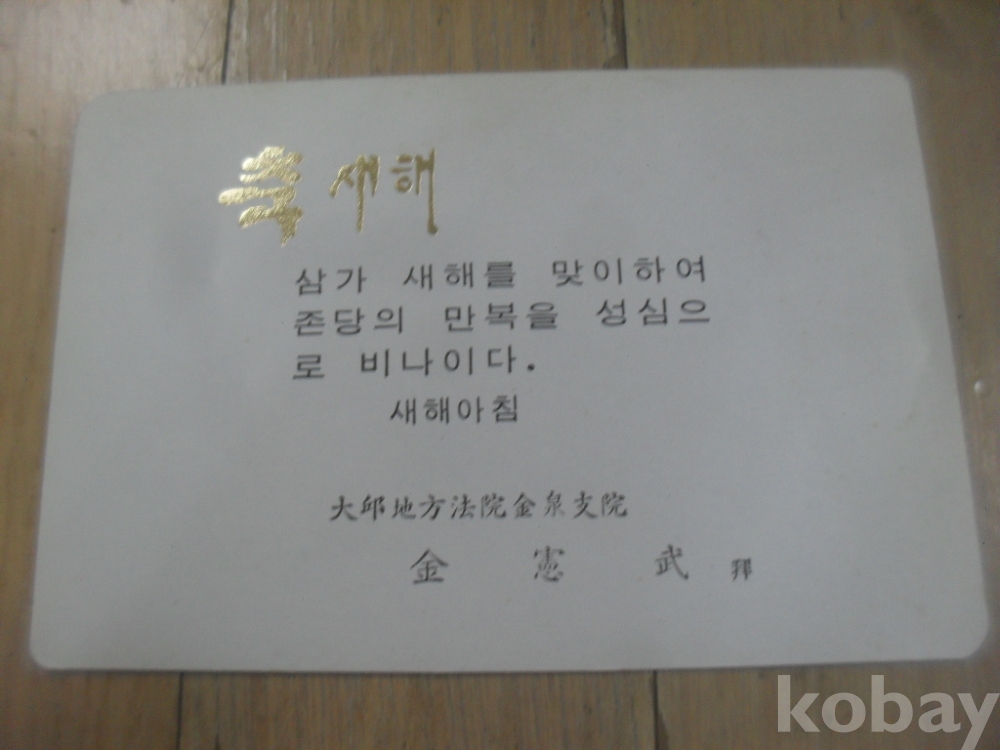 축 새해
삼가 새해를 맞이하여
존당의 만복을 성심으
로 비나이다.
새해아침
大邱地方法院金泉支院
金 憲 武 拜
kobay